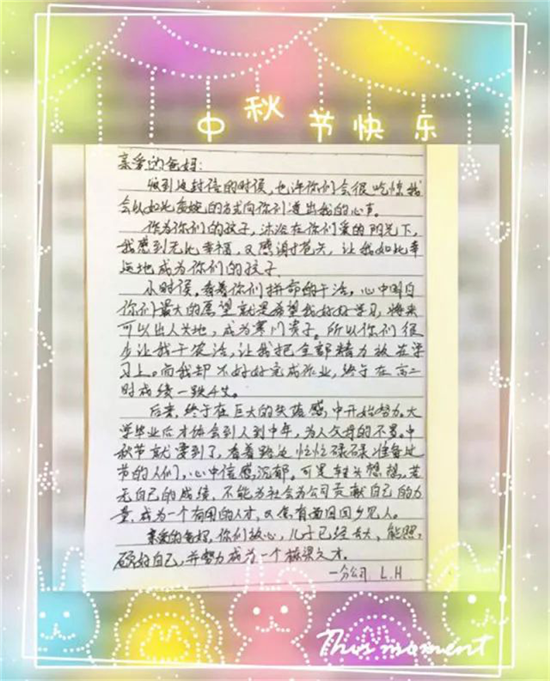 中秋节快乐
亲爱的爸妈:
收到这封信的时候,也许你们会很吃惊我
会以如此委婉的方式向你们道出我的心声。
作为你们的孩子,沐浴在你们爱的阳光下,
我感到无比幸福,又感谢苍天,让我如此幸
运地成为你们的孩子.
小时候,看着你们拼命的干活,心中明白
你们最大的愿望就是希望我好好学习,将来
可以出人头地,成为寒门贵子。所以你们很
少让我干农活,让我把全部精力放在学
习上。而我却不好好完成作业,终于在高二
时成绩一跌千丈。
后来,终于在巨大的失落感中开始努力。大
学毕业后才体会到人到中年,为人父母的不易。中
秋节就要到了,看着路边忙忙碌碌准备过
节的人们,心中倍感沉郁。可是转头想想,若
无自己的成绩,不能为社会为公司贡献自己的力
量,成为一个有用的人才,又有面目回乡见人。
亲爱的爸妈,你们放心,儿子已经长大,能照
顾好自己,并努力成为一个栋梁之才.
一分公司 L.H
This moment